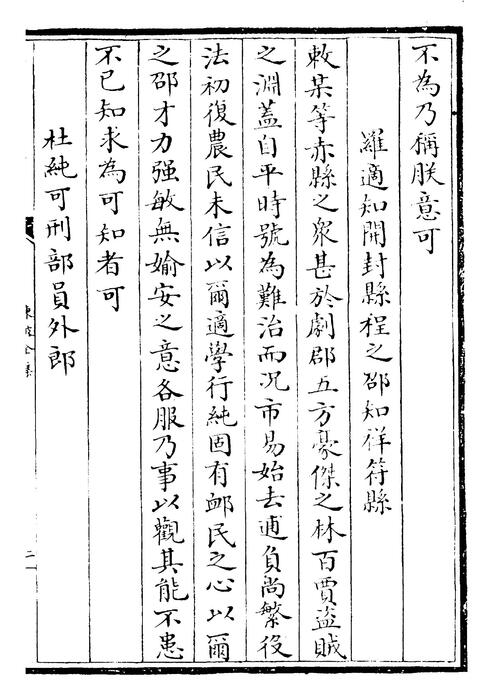 不為乃稱朕意可
羅適知開封縣程之邵知祥符縣
敕某等赤縣之衆甚於劇郡五方豪傑之林百賈盜賊
之淵蓋自平時號為難治而况市易始去逋負尚繁役
法初復農民未信以爾適學行純固有卹民之心以爾
之邵才力强敏無媮安之意各服乃事以觀其能不患
不已知求為可知者可
杜純可刑部員外郎
東坡全集